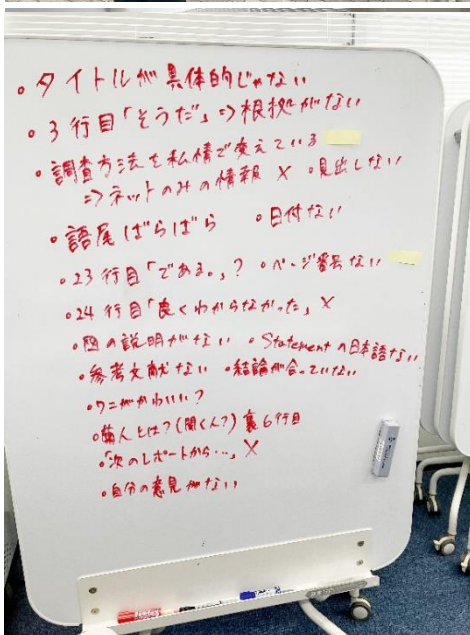 ・タイトルが具体的じゃない
・3行目「そうだ」⇒根拠がない
・調査方法を私情で変えている
⇒ネットのみの情報 × ・見出しない
・語尾ばらばら ・日付ない
・23行目「である。」? ・ページ番号ない
・24行目「良くわからなかった」×
・図の説明がない ・Statementの日本語ない
・参考文献ない ・結論が合っていない
・ワニがかわいい?
・人とは?(聞く人?) 裏6行目
・「次のレポートから…」×
・自分の意見がない